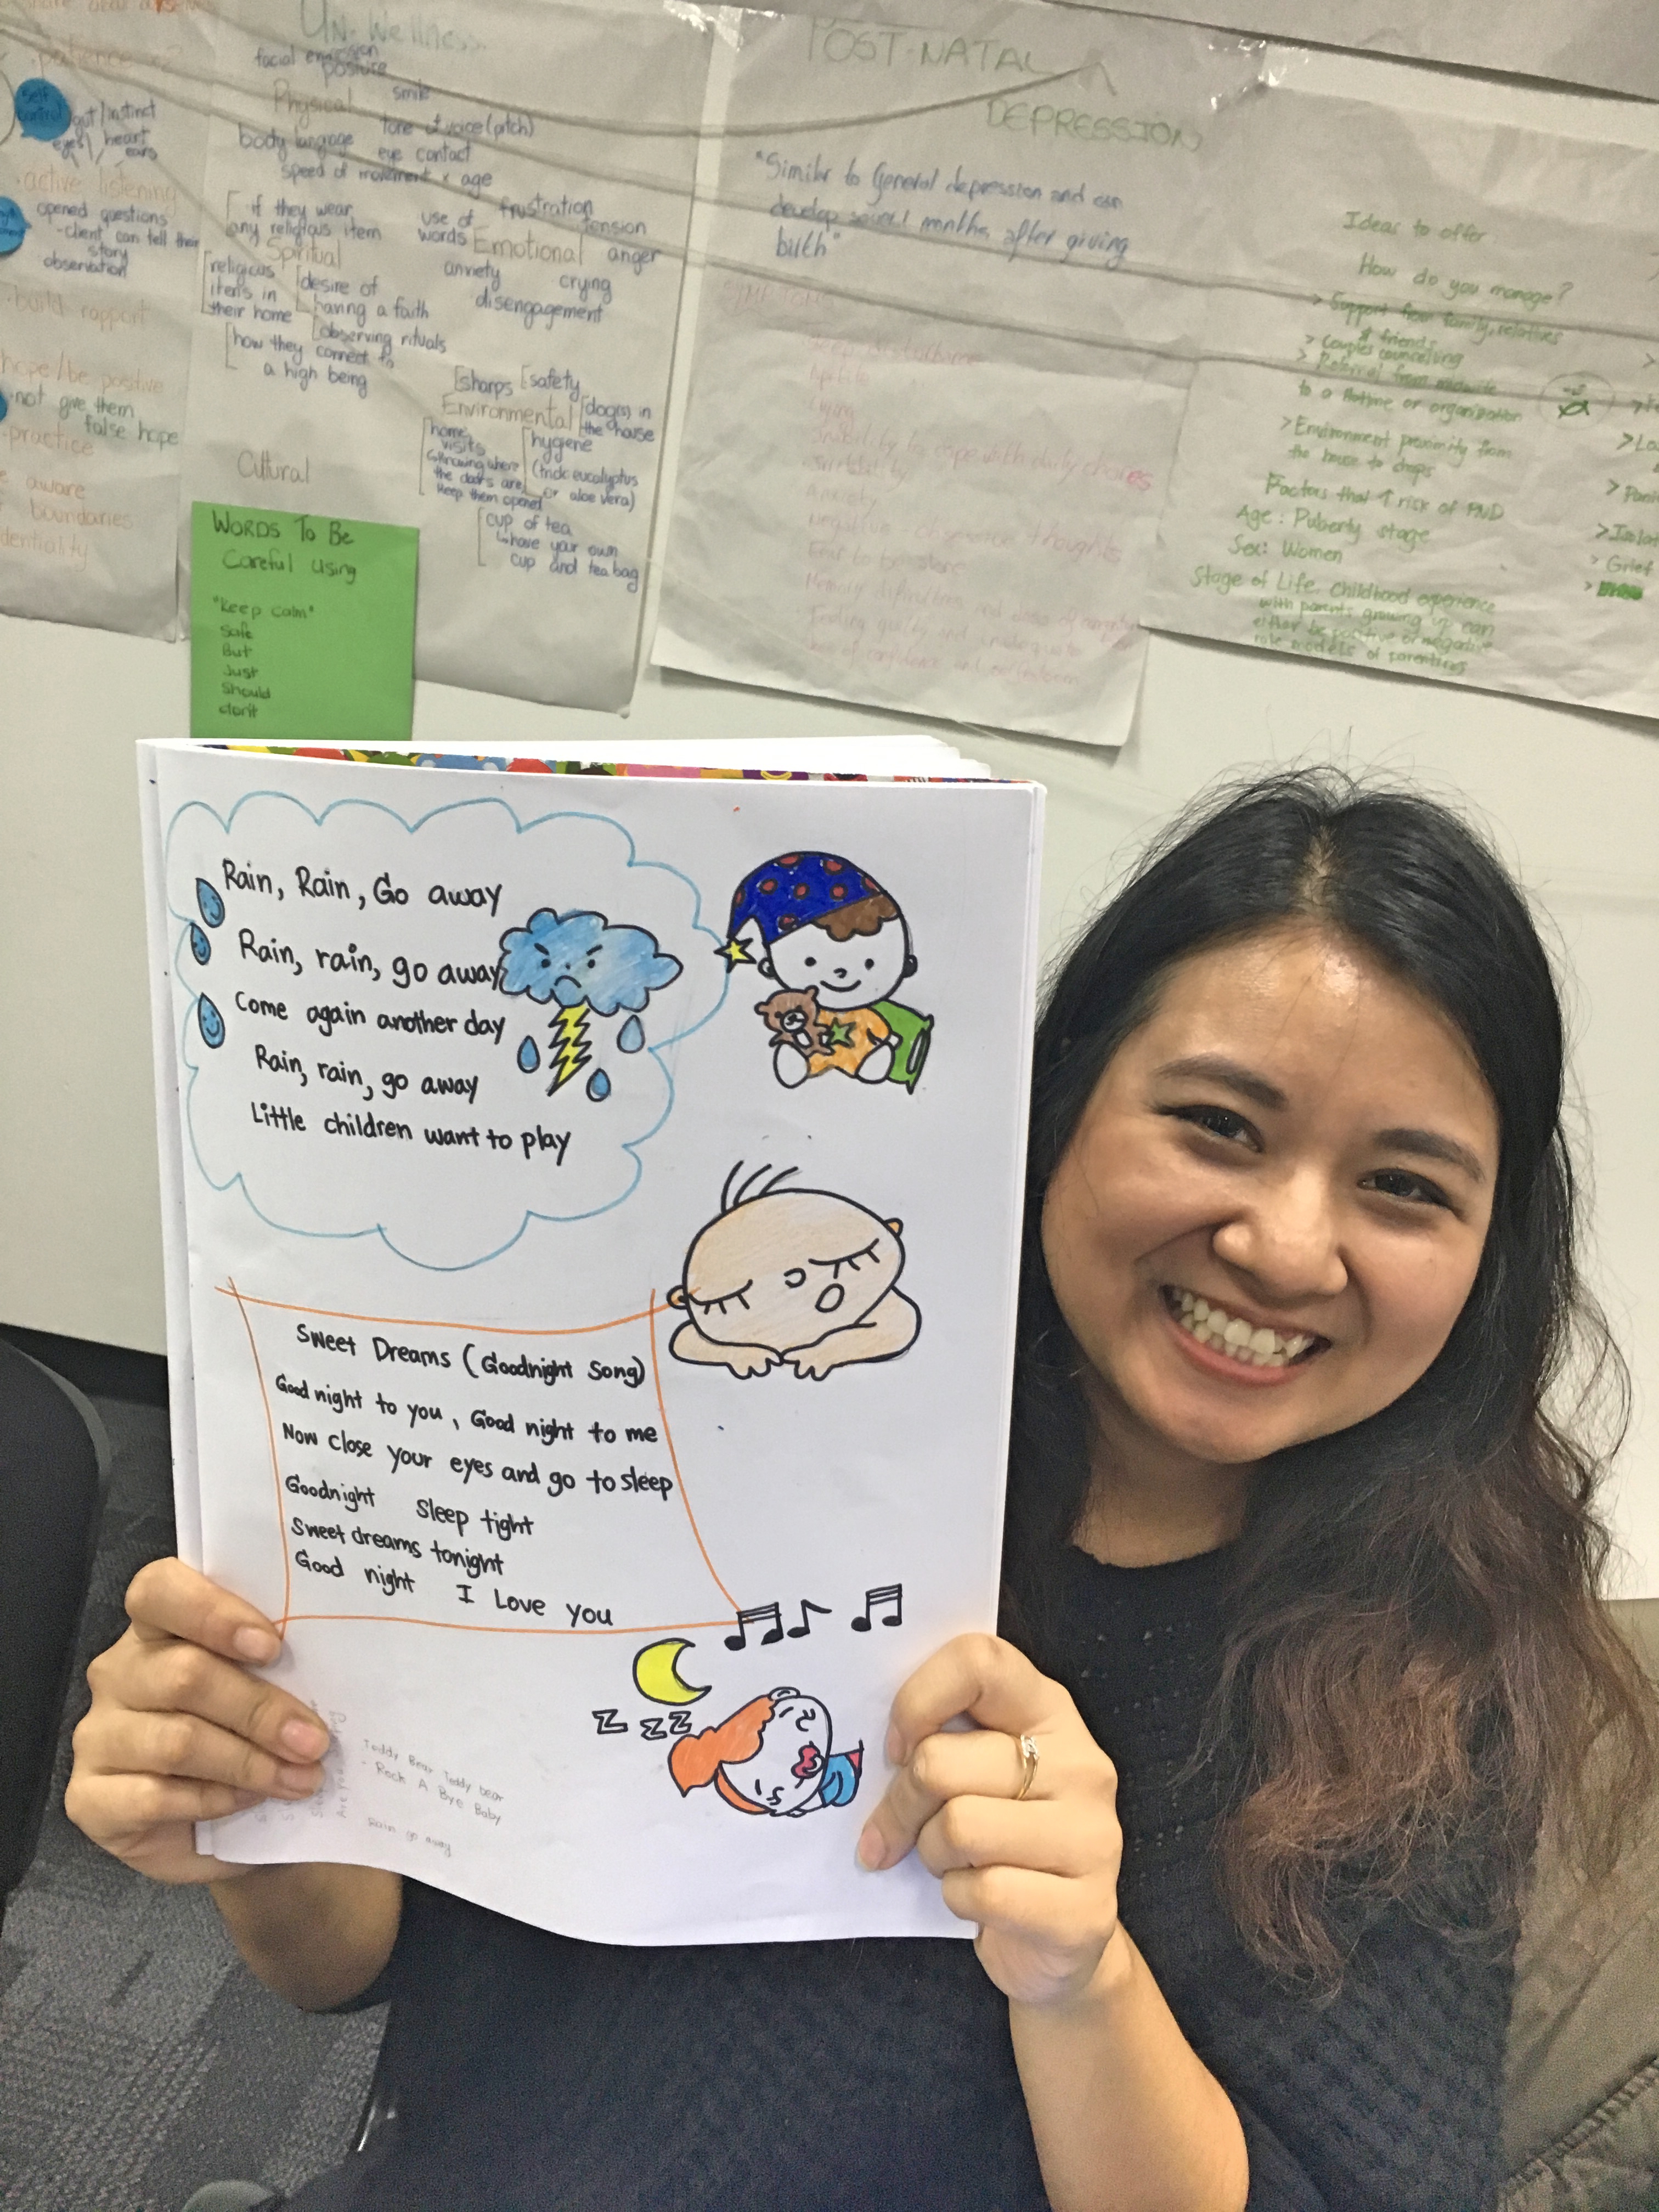 patience x2
self control
gut/instinct
eyes heart
ears
active listening
opened questions
-client can tell their
story
observation
build rapport
hope/be positive
not give them
false hope
practice
aware
boundaries
Un-Wellness
facial expression
posture
Physical
smile
body language
tone of voice (pitch)
eye contact
speed of movement x age
if they wear
any religious item
Spiritual
religious
items in
their home
desire of
having a faith
observing rituals
how they connect to
a high being
use of
words
frustration
tension
Emotional
anger
anxiety
crying
disengagement
sharps
safety
Environmental
dog(s) in
the house
home
visits
knowing where
the doors are,
keep them opened
hygiene
(trick: eucalyptus
or aloe vera)
cup of tea
have your own
cup and tea bag
Cultural
WORDS TO BE
Careful using
"Keep calm"
Safe
But
Just
Should
don't
POST-NATAL
DEPRESSION
"Similar to General depression and can
develop several months after giving
birth"
Crying
Inability to cope with daily chores
Irritability
Anxiety
Negative obsessive thoughts
Fear to be alone
Feeling guilty and inadequate
Ideas to offer
How do you manage?
> Support from family, relatives
& friends
> Couples counselling
> Referral from midwife
to a Plunket or organization
> Environment proximity from
the house to shops
Factors that ↑ risk of PND
Age: Puberty stage
Sex: Women
Stage of Life. Childhood experience
with parents growing up can
either be positive or negative
role models of parenting
> Grief
Rain, Rain, Go away
Rain, rain, go away
Come again another day
Rain, rain, go away
Little children want to play
Sweet Dreams (Goodnight Song)
Good night to you, Good night to me
Now close your eyes and go to sleep
Goodnight Sleep tight
Sweet dreams tonight
Good night I Love you
Z Z Z
Teddy Bear Teddy bear
- Rock A Bye Baby
Rain go away